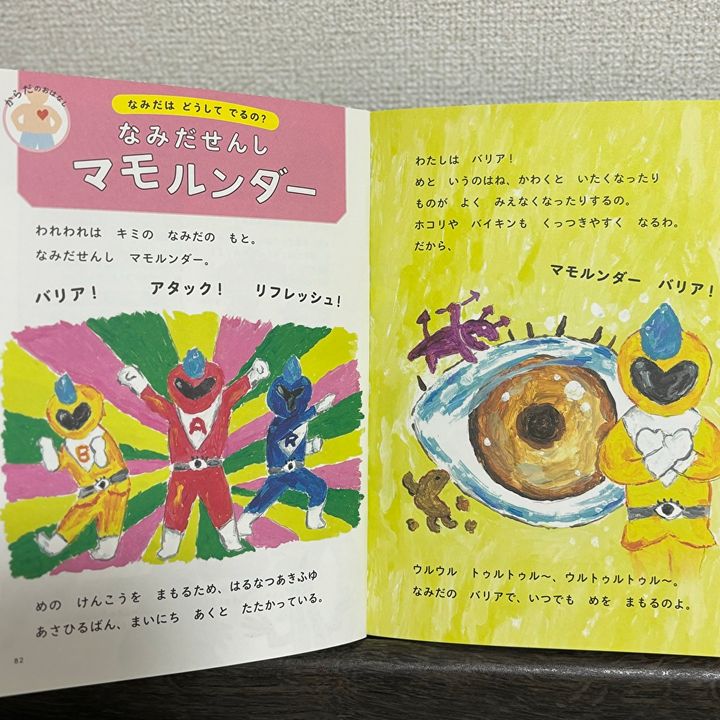 からだのおはなし
なみだは どうして でるの?
なみだせんし
マモルンダー
われわれは キミの なみだの もと。
なみだせんし マモルンダー。
バリア! アタック! リフレッシュ!
B A R
めの けんこうを まもるため、はるなつあきふゆ
あさひるばん、まいにち あくと たたかっている。
82
わたしは バリア!
めと いうのはね、かわくと いたくなったり
ものが よく みえなくなったりするの。
ホコリや バイキンも くっつきやすく なるわ。
だから、
マモルンダー バリア!
ウルウル トゥルトゥル〜、ウルトゥルトゥル〜。
なみだの バリアで、いつでも めを まもるのよ。